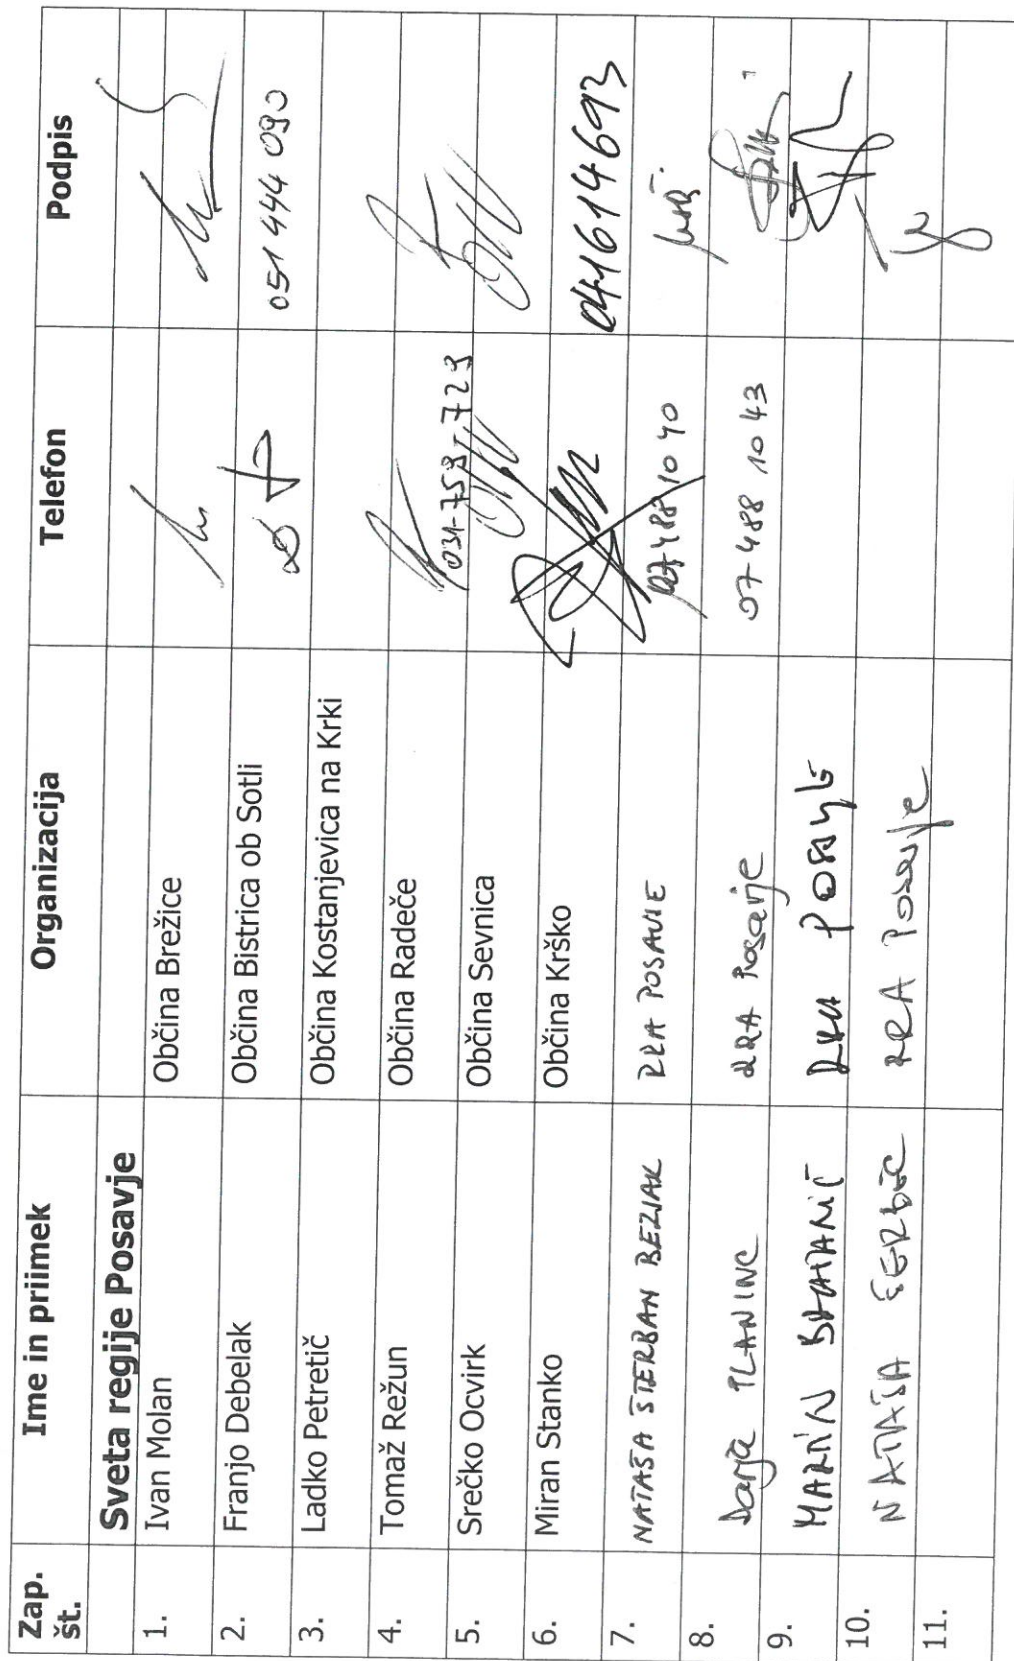 Zap. št. Ime in priimek Organizacija Telefon Podpis
Sveta regije Posavje
1. Ivan Molan Občina Brežice
2. Franjo Debelak Občina Bistrica ob Sotli 051 444 090
3. Ladko Petretič Občina Kostanjevica na Krki
4. Tomaž Režun Občina Radeče
5. Srečko Ocvirk Občina Sevnica 031-758-729
6. Miran Stanko Občina Krško 041614693
7. NATAŠA ŠTERBAN BEZJAK RRA POSAVJE 07 488 10 40
8. Darja PLANINC RRA Posavje 07 488 10 43
9. MARTIN BRATANIČ RRA POSAVJE
10. NATAŠA ŠERBEC RRA Posavje
11.